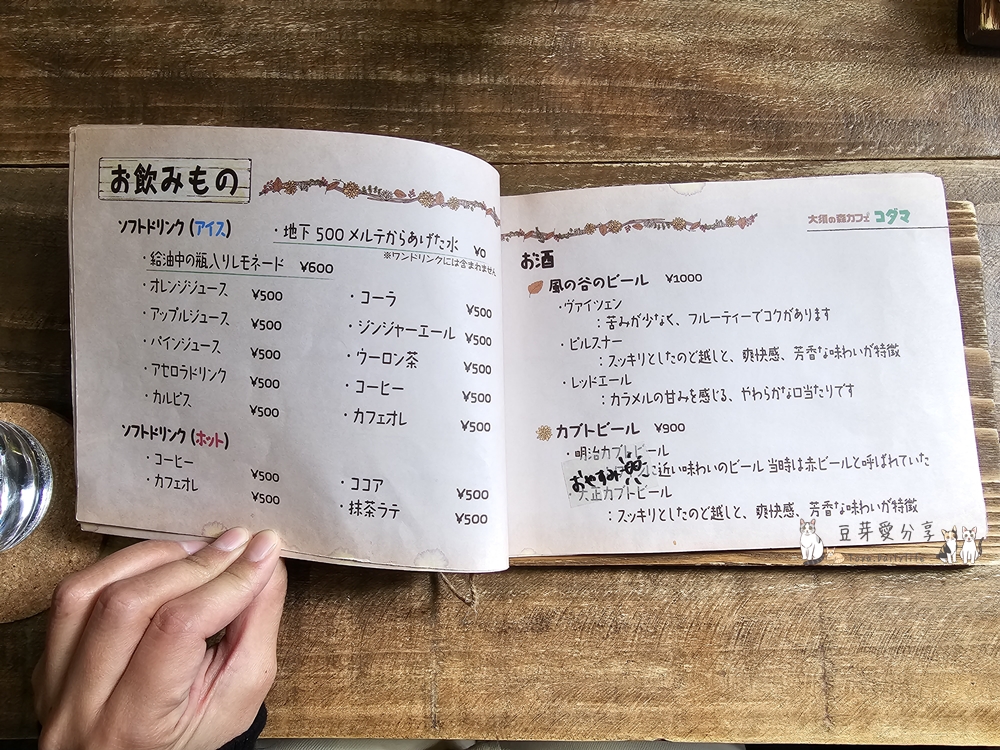 お飲みもの
ソフトドリンク (アイス)
・地下500メルテからあげた水 ¥0
※ワンドリンクには含まれません
・給油中の瓶入りレモネード ¥600
・オレンジジュース ¥500
・アップルジュース ¥500
・パインジュース ¥500
・アセロラドリンク ¥500
・カルピス ¥500
・コーラ ¥500
・ジンジャーエール ¥500
・ウーロン茶 ¥500
・コーヒー ¥500
・カフェオレ ¥500
ソフトドリンク (ホット)
・コーヒー ¥500
・カフェオレ ¥500
・ココア ¥500
・抹茶ラテ ¥500
大須の森カフェ コダマ
お酒
風の谷のビール ¥1000
・ヴァイツェン
:苦みが少なく、フルーティーでコクがあります
・ピルスナー
:スッキリとしたのど越しと、爽快感、芳香な味わいが特徴
・レッドエール
:カラメルの甘みを感じる、やわらかな口当たりです
カブトビール ¥900
・明治カブトビール
おやすみ
に近い味わいのビール 当時は赤ビールと呼ばれていた
・大正カブトビール
:スッキリとしたのど越しと、爽快感、芳香な味わいが特徴
豆芽愛分享